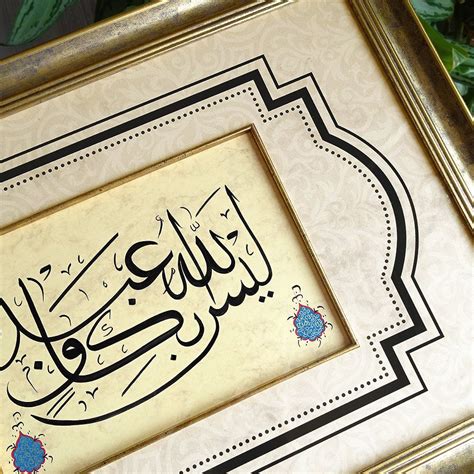 أليس الله بكاف عبد